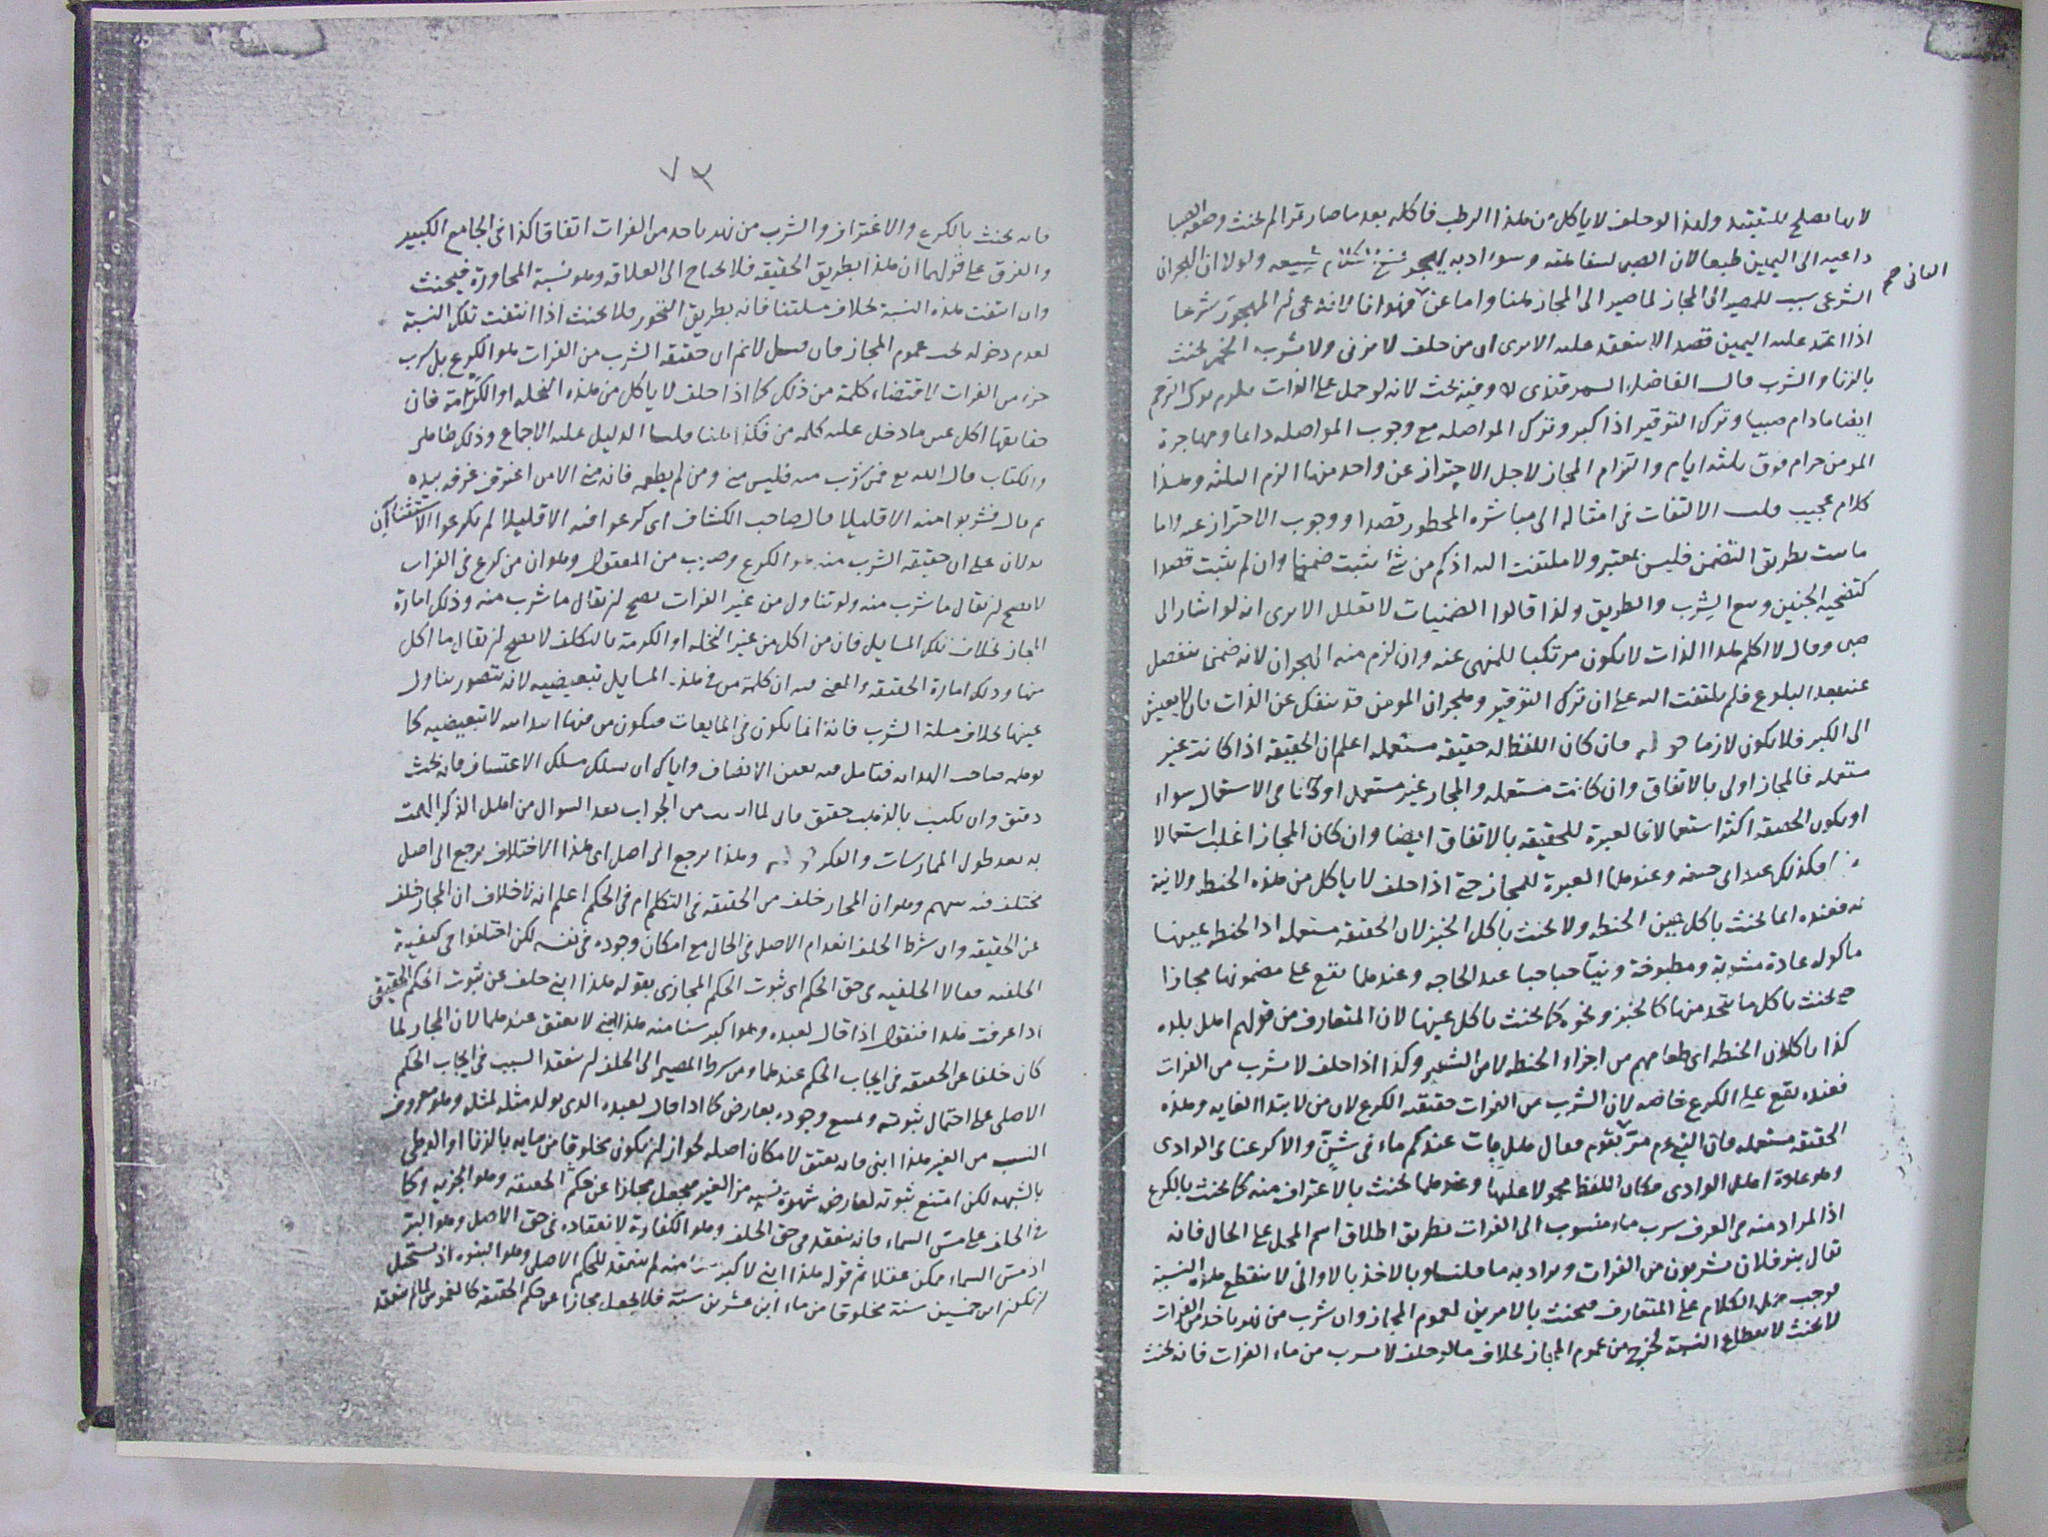 لانها تصلح للتقييد ولهذا لو حلف لا ياكل من هذا الرطب فاكله بعد ما صار تمرا لم يحنث وصفة الصبا
داعية الى اليمين طبعا لان الصبى لسفاهته وسوء ادبه يهجر ولولا ان الهجران
الشرعى سبب للمصير الى المجاز لما صير الى المجاز هنا واما عن فهو انا لا نم المهجور شرعا
اذا عقد عليه اليمين قصدا لا ينعقد عليه الا يرى ان من حلف لا يزنى ولا يشرب الخمر يحنث
بالزنا والشرب قال الفاضل السمرقندى وفيه بحث لانه لو حمل على الذات يلزم ترك الترحم
ايضا ما دام صبيا وترك التوقير اذا كبر وترك المواصلة مع وجوب المواصلة دائما ومهاجرة
المومن حرام فوق ثلثة ايام والتزام المجاز لاجل الاحتراز عن واحد منها الزم الثلثة وهذا
كلام عجيب قلت الالتفات فى امثاله الى مباشرة المحظور قصدا ووجوب الاحتراز عنه واما
ما يثبت بطريق التضمن فليس بمعتبر ولا ملتفت اليه اذ كم من شئ يثبت ضمنا وان لم يثبت قصدا
كتضحية الجنين وبيع الشرب والطريق ولذا قالوا الضمنيات لا تعلل الا يرى انه لو اشار الى
صبى وقال لا اكلم هذا الذات لا يكون مرتكبا للمنهى عنه وان لزم منه الهجران لانه ضمنا ينفصل
عنه بعد البلوغ فلم يلتفت اليه على ان ترك التوقير وهجران المومن قد ينفك عن الذات بان لا يعيش
الى الكبر فلا يكون لازما قوله فان كان اللفظ له حقيقة مستعملة اعلم ان الحقيقة اذا كانت غير
مستعملة فالمجاز اولى بالاتفاق وان كانت مستعملة والمجاز غير مستعمل او كانا فى الاستعمال سواء
او يكون الحقيقة اكثر استعمالا فالعبرة للحقيقة بالاتفاق ايضا وان كان المجاز اغلب استعمالا
فكذلك عند ابى حنيفة وعندهما العبرة للمجاز حتى اذا حلف لا ياكل من هذه الحنطة ولا نية
له فعنده انما يحنث باكل عين الحنطة ولا يحنث باكل الخبز لان الحقيقة مستعملة اذ الحنطة عينها
ماكولة عادة مشوية ومطبوخة ونيا حبا حبا عند الحاجة وعندهما تقع على مضمونها مجازا
حتى يحنث باكل ما يتخذ منها كالخبز ونحوه كما يحنث باكل عينها لان المتعارف من قولهم اهل بلده
كذا ياكلون الحنطة اى طعامهم من اجزاء الحنطة لا من الشعير وكذا اذا حلف لا يشرب من الفرات
فعنده يقع على الكرع خاصة لان الشرب من الفرات حقيقته الكرع لان من لابتداء الغاية وهذه
الحقيقة مستعملة فان النبى عم مر بقوم فقال هل بات عندكم ماء فى شن والا كرعنا فى الوادى
وهو عادة اهل الوادى فكان اللفظ محمولا عليها وعندهما يحنث بالاغتراف منه كما يحنث بالكرع
اذ المراد منه فى العرف شرب ماء منسوب الى الفرات بطريق اطلاق اسم المحل على الحال فانه
يقال بنو فلان يشربون من الفرات ويراد به ما قلنا وبالاخذ بالاوانى لا ينقطع هذه النسبة
فوجب حمل الكلام على المتعارف فيحنث بالامرين لعموم المجاز وان شرب من نهر ياخذ من الفرات
لا يحنث لانقطاع النسبة لخرج من عموم المجاز بخلاف ما لو حلف لا يشرب من ماء الفرات فانه يحنث
٧٣
فانه يحنث بالكرع والاغتراف والشرب من نهر ياخذ من الفرات اتفاقا كذا فى الجامع الكبير
والفرق على قولهما ان هذا بطريق الحقيقة فلا يحتاج الى العلاقة وهو نسبة المجاورة فيحنث
وان انتفت هذه النسبة بخلاف مسئلتنا فانه بطريق التجوز فلا يحنث اذا انتفت تلك النسبة
لعدم دخوله تحت عموم المجاز فان قيل لا نم ان حقيقة الشرب من الفرات هو الكرع بل شرب
جزء من الفرات لاقتضاء كلمة من ذلك كما اذا حلف لا ياكل من هذه النخلة او الكرمة فان
حقايقها اكل عين ما دخل عليه كلمة من فكذا هنا قلت الدليل عليه الاجماع وذلك ظاهر
والكتاب قال الله تع فمن شرب منه فليس منى ومن لم يطعمه فانه منى الا من اغترف غرفة بيده
ثم قال فشربوا منه الا قليلا قال صاحب الكشاف اى كرعوا فيه الا قليلا لم يكرعوا الاستثناآن
يدلان على ان حقيقة الشرب منه هو الكرع وضرب من المعقول وهو ان من كرع فى الفرات
لا يصح ان يقال ما شرب منه ولو تناول من غير الفرات يصح ان يقال ما شرب منه وذلك امارة
المجاز بخلاف تلك المسايل فان من اكل من غير النخلة او الكرمة بالتكلف لا يصح ان يقال ما اكل
منها وذلك امارة الحقيقة والمعنى فيه ان كلمة من فى هذه المسايل تبعيضية لانه يتصور تناول
عينها بخلاف مسئلة الشرب فانه انما يكون فى المايعات فيكون من فيها ابتدائية لا تبعيضية كما
توهمه صاحب الهداية فتامل فيه بعين الانصاف واياك ان تسلك مسلك الاعتساف فانه بحث
دقيق وان يكتب بالذهب حقيق
به بعد طول الممارسات والفكر قوله وهذا يرجع الى اصل اى هذا الاختلاف يرجع الى اصل
مختلف فيه بينهم وهو ان المجاز خلف من الحقيقة فى التكلم ام فى الحكم اعلم انه لا خلاف ان المجاز خلف
عن الحقيقة وان شرط الخلف انعدام الاصل فى الحال مع امكان وجوده فى نفسه لكن اختلفوا فى كيفية
الخلفية فقالا الخلفية فى حق الحكم اى ثبوت الحكم المجازى بقوله هذا ابنى خلف عن ثبوت الحكم الحقيقى
اذا عرفت هذا فنقول اذا قال لعبده وهو اكبر سنا منه هذا ابنى لا يعتق عندهما لان المجاز لما
كان خلفا عن الحقيقة فى ايجاب الحكم عندهما ومن شرط المصير الى الخلف ان ينعقد السبب فى ايجاب الحكم
الاصلى على احتمال ثبوته ويمتنع وجوده بعارض كما اذا قال لعبده الذى يولد مثله لمثله وهو معروف
النسب من الغير هذا ابنى فانه يعتق لامكان اصله لجواز ان يكون مخلوقا من مائه بالزنا او الوطئ
بالشبهة لكن امتنع ثبوته لعارض شهرة نسبه من الغير فيجعل مجازا عن حكم الحقيقة وهو الحرية وكما
فى الحلف على مس السماء فانه ينعقد فى حق الخلف وهو الكفارة لانعقاده فى حق الاصل وهو البر
اذ مس السماء ممكن عقلا ثم قوله هذا ابنى لاكبر سنا منه لم ينعقد للحكم الاصلى وهو البنوة اذ يستحيل
ان يكون ابن خمسين سنة مخلوقا من ماء ابن عشرين سنة فلا يجعل مجازا عن حكم الحقيقة كالغموس لما لم ينعقد